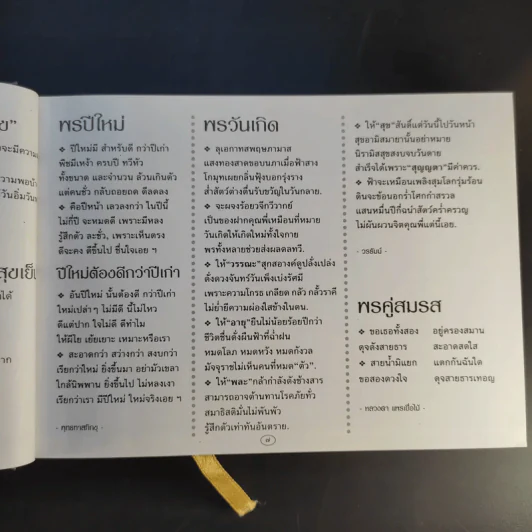 ข”
จะมีความ
วันอิ่มวัน
สุขเย็น
ได้
าก
พรปีใหม่
❖ ปีใหม่มี สำหรับดี กว่าปีเก่า
พืชมีเหง้า ครบปี ทวีหัว
ทั้งขนาด และจำนวน ล้วนเกินตัว
แต่คนชั่ว กลับถอยถด ดีลดลง
❖ คือปีหน้า เลวลงกว่า ในปีนี้
ไม่กี่ปี จะหมดดี เพราะมีหลง
รู้สึกตัว ละชั่ว, เพราะเห็นตรง
ดีจะคง ดีขึ้นไป ชื่นใจเอย ฯ
ปีใหม่ต้องดีกว่าปีเก่า
❖ อันปีใหม่ นั้นต้องดี กว่าปีเก่า
ใหม่เปล่าๆ ไม่มีดี นี้ไม่ไหว
ดีแต่ปาก ใจไม่ดี ดีทำไม
ให้ผีไย เย้ยเยาะ เหมาะหรือเรา
❖ สะอาดกว่า สว่างกว่า สงบกว่า
เรียกว่าใหม่ ยิ่งขึ้นมา อย่ามัวเขลา
ใกล้นิพพาน ยิ่งขึ้นไป ไม่หลงเงา
เรียกว่าเรา มีปีใหม่ ใหม่จริงเอย ฯ
- พุทธทาสภิกขุ -
พรวันเกิด
❖ ลุเอกาทสพฤษภามาส
แสงทองสาดขอบนภาเมื่อฟ้าสาง
โกมุทเผยกลิ่นฟุ้งบอกรุ่งราง
สัตว์ต่างตื่นรับขวัญในวันกลาย.
❖ จะผจงร้อยจีกวิวากย์
เป็นของฝากคุณพี่เหมือนที่หมาย
วันเกิดให้เกิดใหม่ทั้งใจกาย
พรทั้งหลายช่วยส่งผลดลทวี.
❖ ให้“วรรณะ”สุกสองค์ดูปลั่งเปล่ง
ดั่งดวงจันทร์วันเพ็งเบ่งรัศมี
เพราะความโกรธ เกลียด กลัว กลั้วราคี
ไม่ย่ำยีความผ่องใสข้างในตน.
❖ ให้“อายุ”ยืนไม่น้อยร้อยปีกว่า
ชีวิตชื่นดั่งผืนฟ้าที่ฉ่ำฝน
หมดโลภ หมดหวัง หมดกังวล
มัจจุราชไม่เห็นคนที่หมด“ตัว”.
❖ ให้“พละ”กล้ากำลังดังช้างสาร
สามารถอาจต้านทานโรคภัยทั่ว
สมาธิสติมั่นไม่พันพัว
รู้สึกตัวเท่าทันอันตราย.
๗
❖ ให้“สุข”สันติ์แต่วันนี้ไปวันหน้า
สุขอามิสมายานั้นอย่าหมาย
นิรามิสสุขสงบจบวันตาย
สำเร็จได้เพราะ“สุญญตา”มีค่าควร.
❖ ฟ้าจะเหมือนเพลิงสุมโลกรุ่มร้อน
ดินจะซ้อนอกร่ำโศกกำสรวล
แสนหมื่นปีก็ฉนำสัตว์คร่ำครวญ
ไม่ผันผวนจิตคุณพี่แต่นี้เอย.
- วรธัมม์ -
พรคู่สมรส
❖ ขอเธอทั้งสอง อยู่ครองสมาน
ดุจดังสายธาร สะอาดสดใส
❖ สายน้ำมิแยก แตกกันฉันใด
ขอสองดวงใจ ดุจสายธารเทอญ